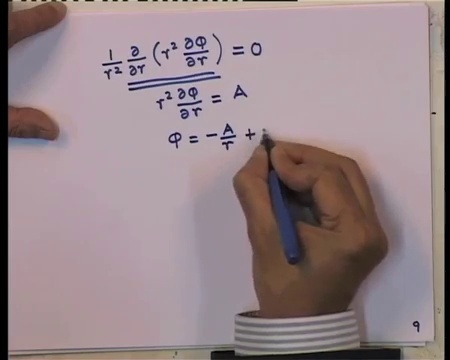 1/r² ∂/∂r (r² ∂φ/∂r) = 0
r² ∂φ/∂r = A
φ = -A/r +
9